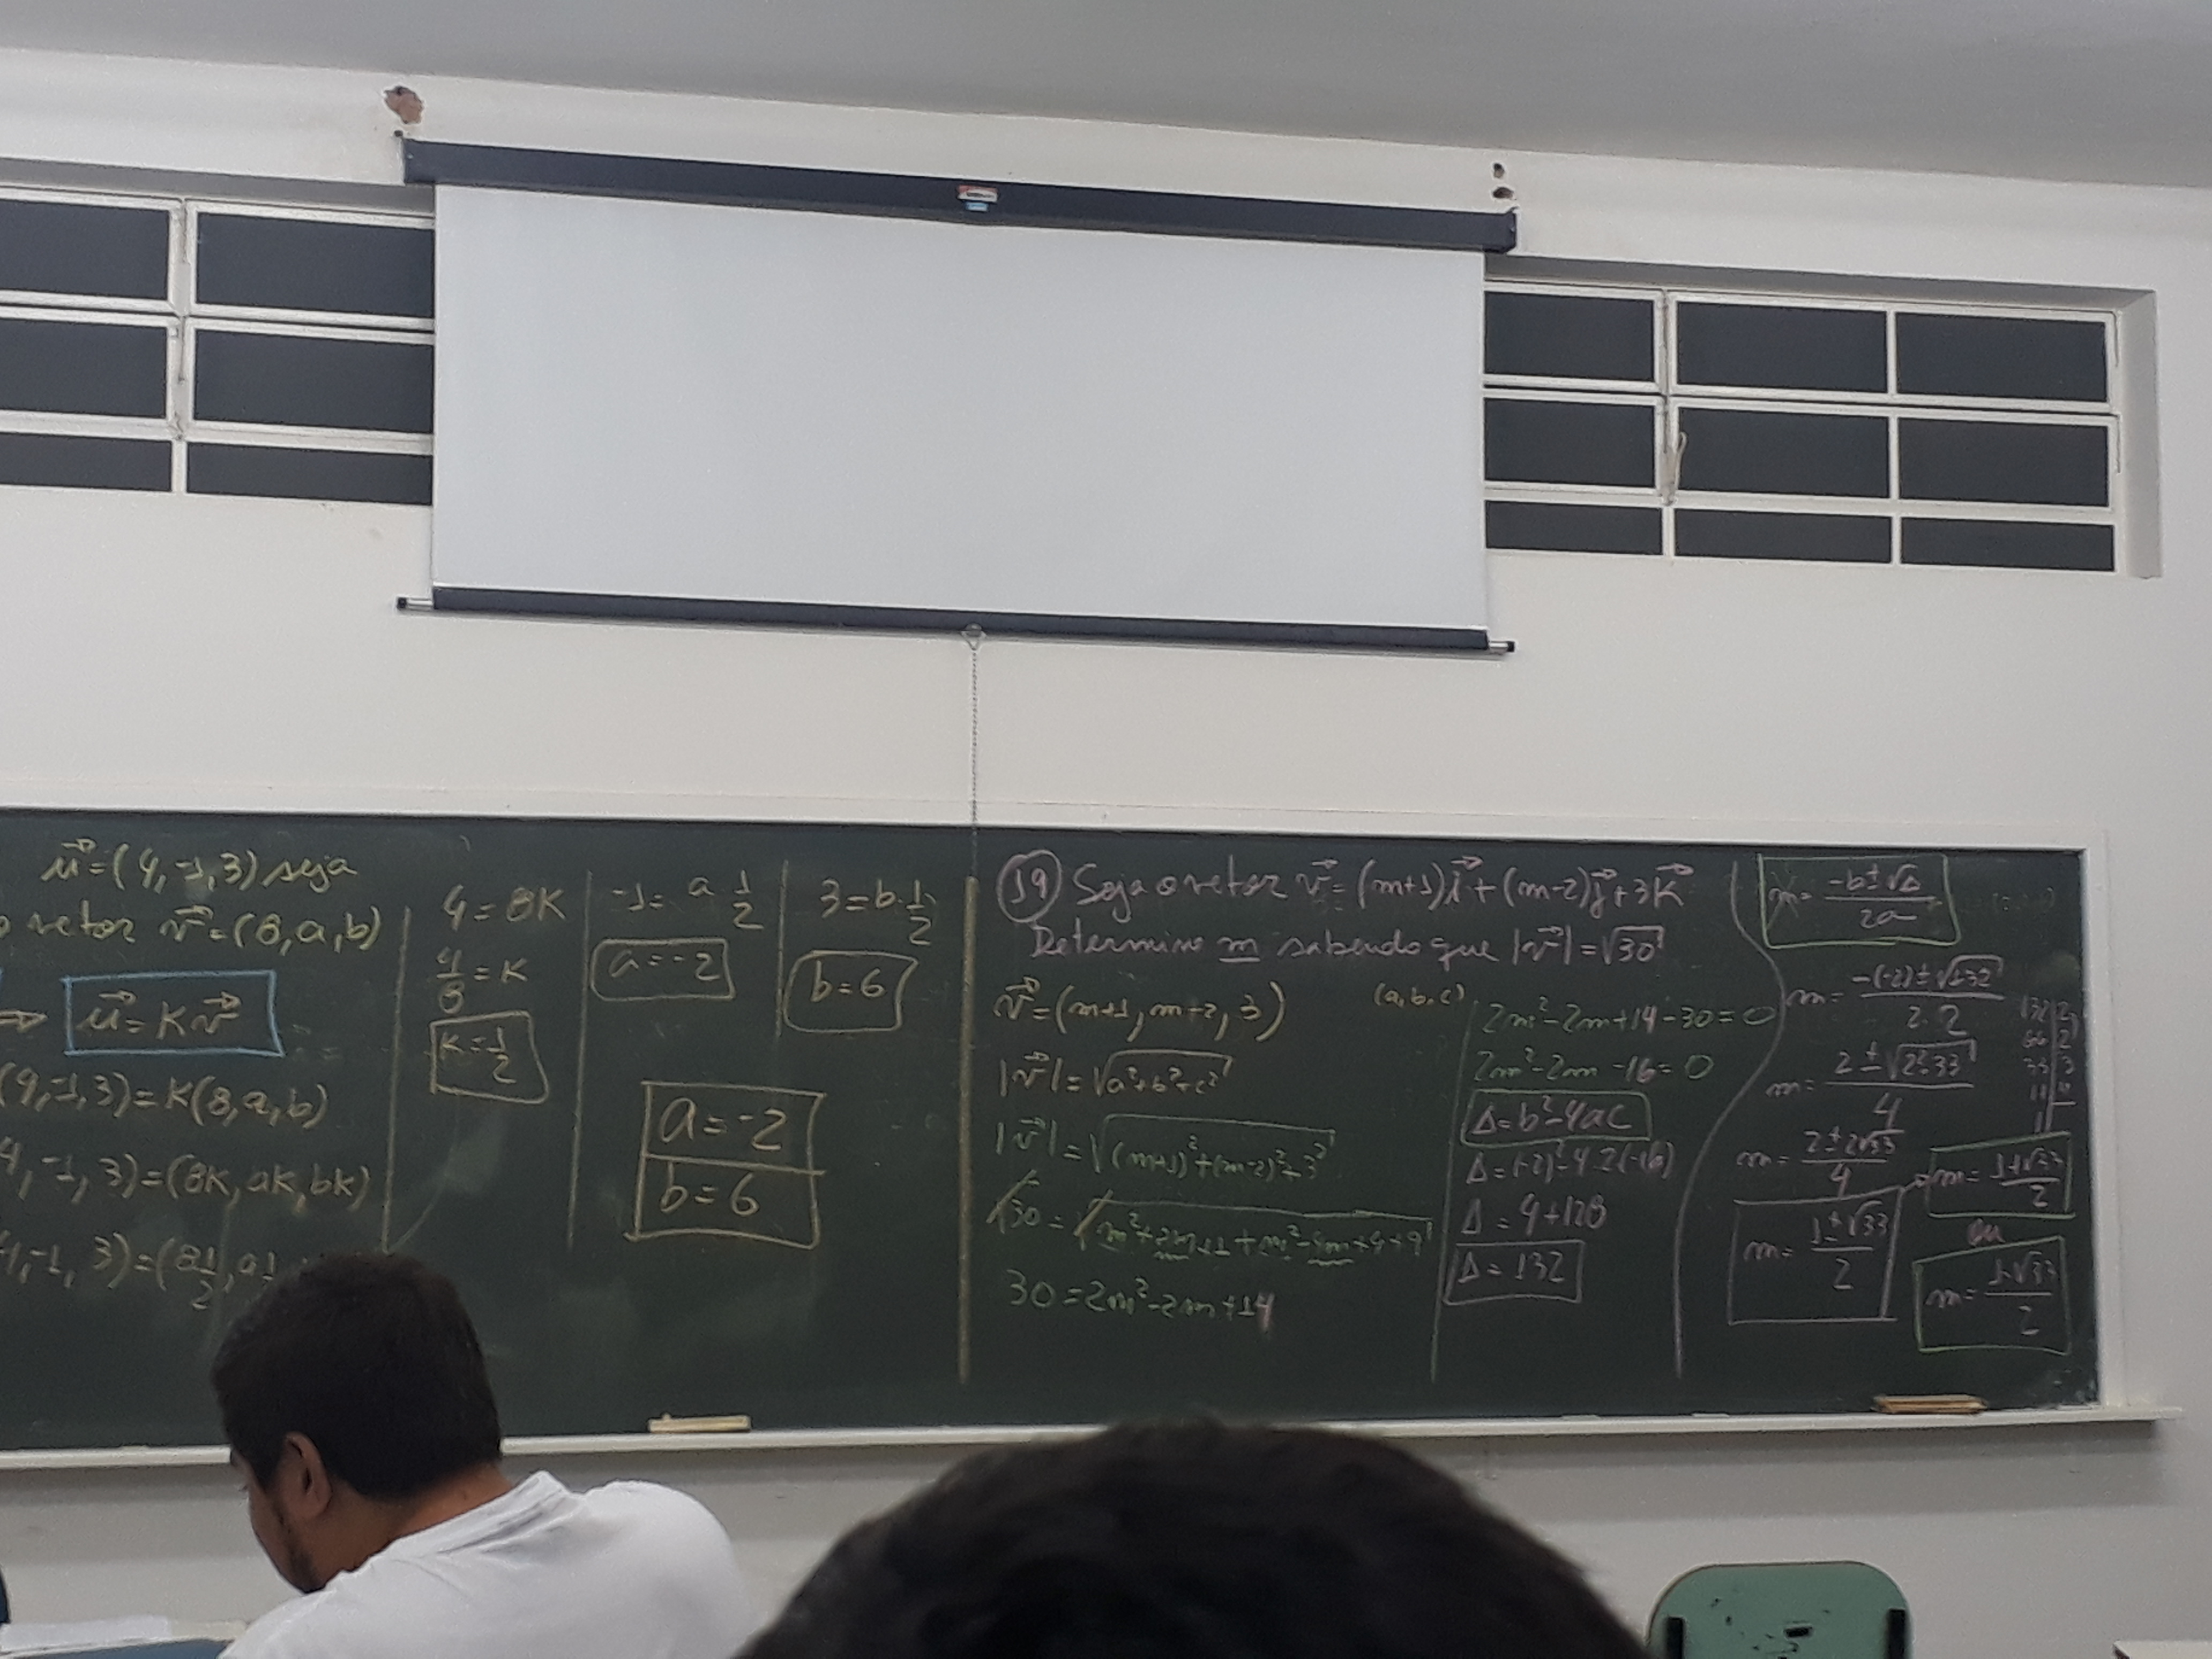 u⃗=(4,-1,3) seja
o vetor v⃗=(8,a,b)
⇒ u⃗=Kv⃗
(4,-1,3)=K(8,a,b)
4,-1,3)=(8K,aK,bK)
4,-1, 3)=(8 1/2, a 1
4=8K
4/8=K
K=1/2
-1= a 1/2
a=-2
3=b.1/2
b=6
a=-2
b=6
19 Seja o vetor v⃗=(m+1)i⃗+(m-2)j⃗+3K⃗
Determine m sabendo que |v⃗|=√30
v⃗=(m+1,m-2,3) (a,b,c)
|v⃗|=√a²+b²+c²
|v⃗|=√(m+1)²+(m-2)²+3²
√30=√m²+2m+1+m²-4m+4+9
30=2m²-2m+14
2m²-2m+14-30=0
2m²-2m-16=0
Δ=b²-4ac
Δ=(-2)²-4.2(-16)
Δ=4+128
Δ=132
m= -b±√Δ/2a
m= -(-2)±√132/2.2
m= 2±√2².33/4
m= 2±2√33/4
m= 1±√33/2
132|2
66|2
33|3
11|11
1|
m= 1+√33/2
ou
m= 1-√33/2